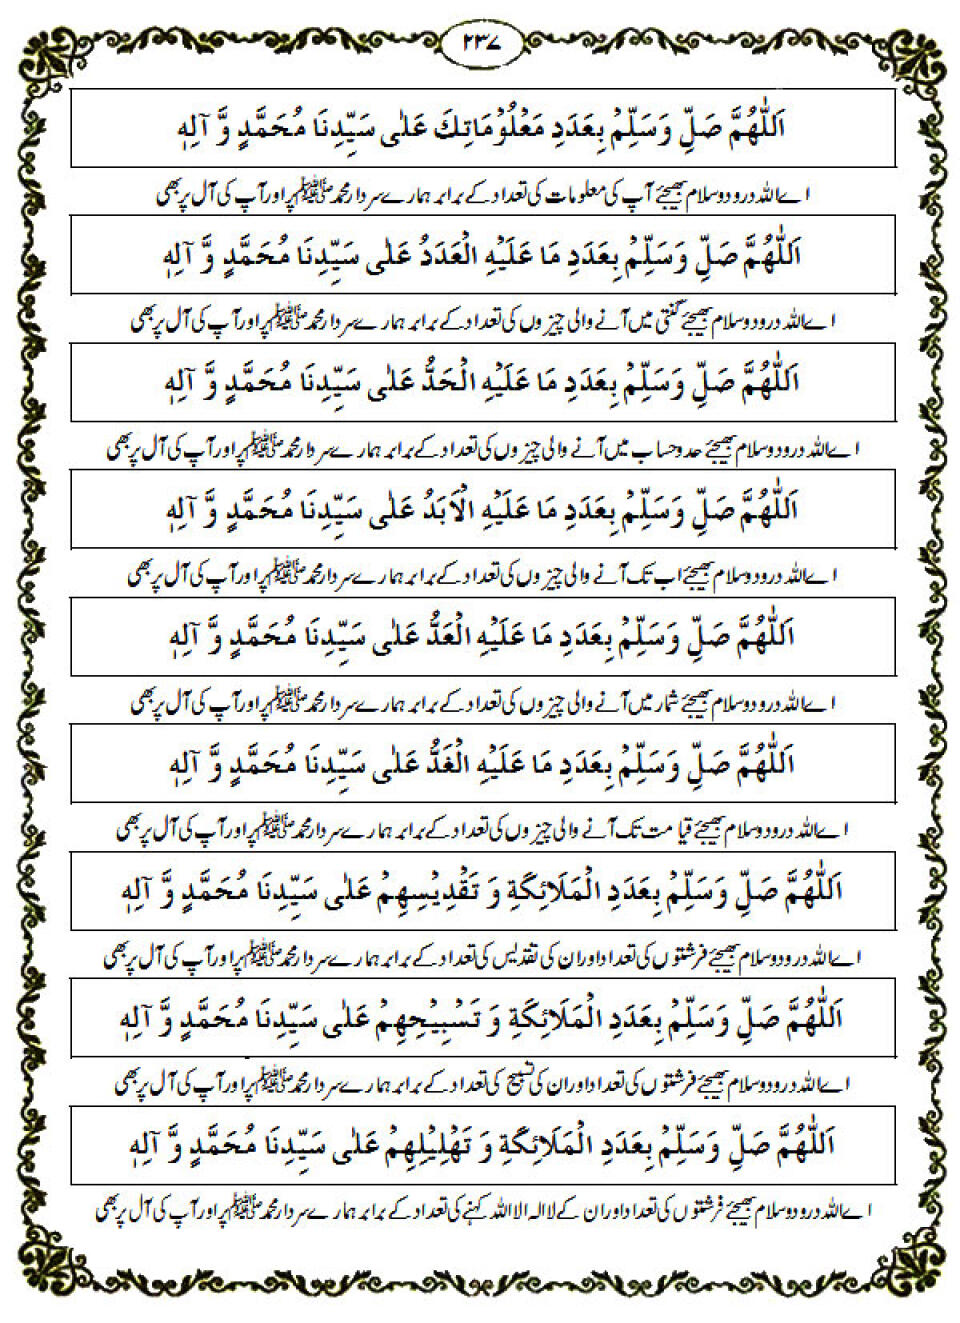 ۲۳۷
اَللّٰهُمَّ صَلِّ وَسَلِّمْ بِعَدَدِ مَعْلُوْمَاتِكَ عَلٰى سَيِّدِنَا مُحَمَّدٍ وَّ آلِهٖ
اے اللہ درود وسلام بھیجئے آپ کی معلومات کی تعداد کے برابر ہمارے سردار محمد ﷺ پر اور آپ کی آل پر بھی
اَللّٰهُمَّ صَلِّ وَسَلِّمْ بِعَدَدِ مَا عَلَيْهِ الْعَدَدُ عَلٰى سَيِّدِنَا مُحَمَّدٍ وَّ آلِهٖ
اے اللہ درود وسلام بھیجئے گنتی میں آنے والی چیزوں کی تعداد کے برابر ہمارے سردار محمد ﷺ پر اور آپ کی آل پر بھی
اَللّٰهُمَّ صَلِّ وَسَلِّمْ بِعَدَدِ مَا عَلَيْهِ الْحَدُّ عَلٰى سَيِّدِنَا مُحَمَّدٍ وَّ آلِهٖ
اے اللہ درود وسلام بھیجئے حد وحساب میں آنے والی چیزوں کی تعداد کے برابر ہمارے سردار محمد ﷺ پر اور آپ کی آل پر بھی
اَللّٰهُمَّ صَلِّ وَسَلِّمْ بِعَدَدِ مَا عَلَيْهِ الْاَبَدُ عَلٰى سَيِّدِنَا مُحَمَّدٍ وَّ آلِهٖ
اے اللہ درود وسلام بھیجئے اب تک آنے والی چیزوں کی تعداد کے برابر ہمارے سردار محمد ﷺ پر اور آپ کی آل پر بھی
اَللّٰهُمَّ صَلِّ وَسَلِّمْ بِعَدَدِ مَا عَلَيْهِ الْعَدُّ عَلٰى سَيِّدِنَا مُحَمَّدٍ وَّ آلِهٖ
اے اللہ درود وسلام بھیجئے شمار میں آنے والی چیزوں کی تعداد کے برابر ہمارے سردار محمد ﷺ پر اور آپ کی آل پر بھی
اَللّٰهُمَّ صَلِّ وَسَلِّمْ بِعَدَدِ مَا عَلَيْهِ الْغَدُّ عَلٰى سَيِّدِنَا مُحَمَّدٍ وَّ آلِهٖ
اے اللہ درود وسلام بھیجئے قیامت تک آنے والی چیزوں کی تعداد کے برابر ہمارے سردار محمد ﷺ پر اور آپ کی آل پر بھی
اَللّٰهُمَّ صَلِّ وَسَلِّمْ بِعَدَدِ الْمَلَائِكَةِ وَ تَقْدِيْسِهِمْ عَلٰى سَيِّدِنَا مُحَمَّدٍ وَّ آلِهٖ
اے اللہ درود وسلام بھیجئے فرشتوں کی تعداد اور ان کی تقدیس کی تعداد کے برابر ہمارے سردار محمد ﷺ پر اور آپ کی آل پر بھی
اَللّٰهُمَّ صَلِّ وَسَلِّمْ بِعَدَدِ الْمَلَائِكَةِ وَ تَسْبِيْحِهِمْ عَلٰى سَيِّدِنَا مُحَمَّدٍ وَّ آلِهٖ
اے اللہ درود وسلام بھیجئے فرشتوں کی تعداد اور ان کی تسبیح کی تعداد کے برابر ہمارے سردار محمد ﷺ پر اور آپ کی آل پر بھی
اَللّٰهُمَّ صَلِّ وَسَلِّمْ بِعَدَدِ الْمَلَائِكَةِ وَ تَهْلِيْلِهِمْ عَلٰى سَيِّدِنَا مُحَمَّدٍ وَّ آلِهٖ
اے اللہ درود وسلام بھیجئے فرشتوں کی تعداد اور ان کے لا الہ الا اللہ کہنے کی تعداد کے برابر ہمارے سردار محمد ﷺ پر اور آپ کی آل پر بھی